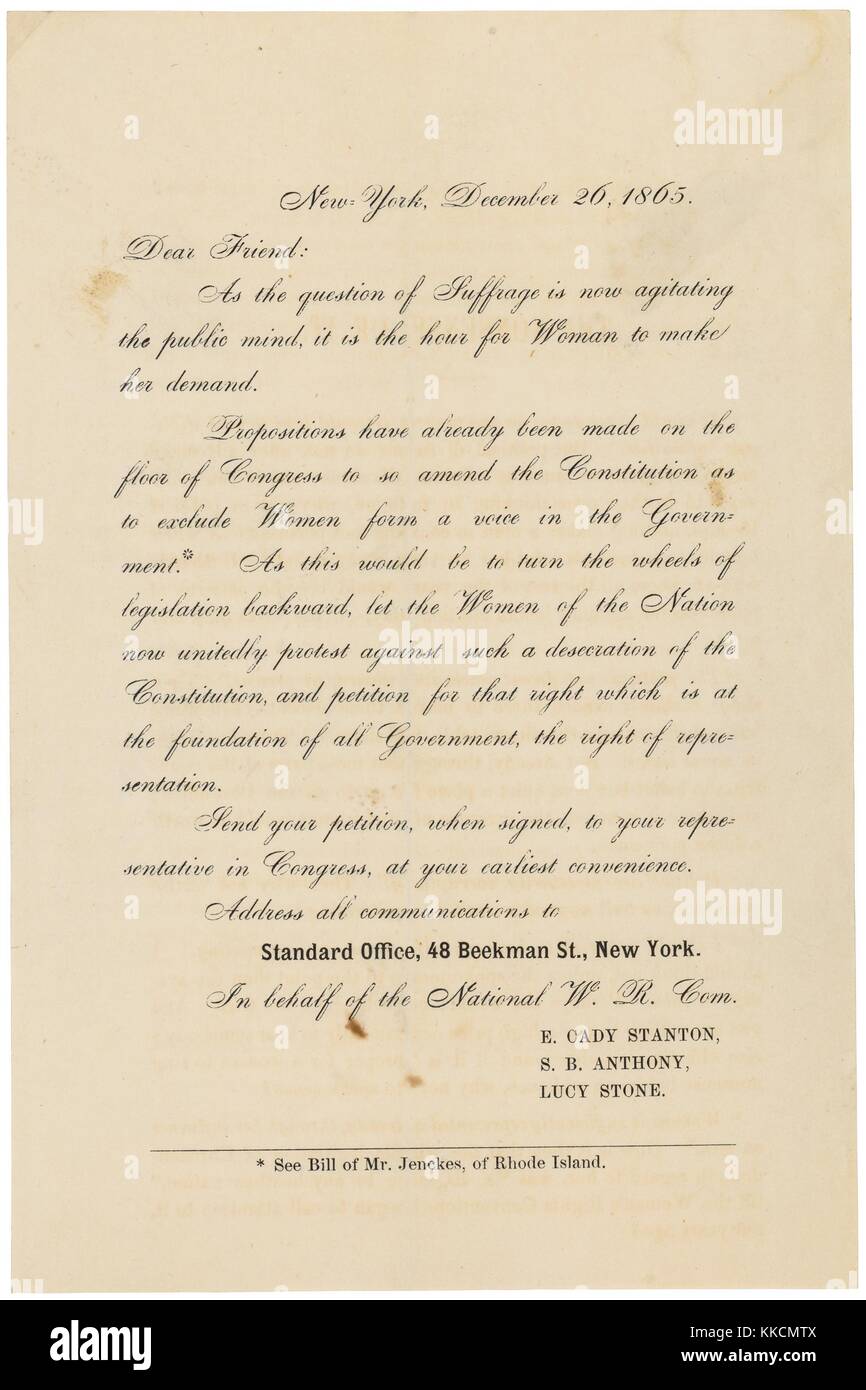 New-York, December 26, 1865.
Dear Friend:
As the question of Suffrage is now agitating
the public mind, it is the hour for Woman to make
her demand.
Propositions have already been made on the
floor of Congress to so amend the Constitution as
to exclude Women form a voice in the Govern=
ment.* As this would be to turn the wheels of
legislation backward, let the Women of the Nation
now unitedly protest against such a desecration of the
Constitution, and petition for that right which is at
the foundation of all Government, the right of repre=
sentation.
Send your petition, when signed, to your repre=
sentative in Congress, at your earliest convenience.
Address all communications to
Standard Office, 48 Beekman St., New York.
In behalf of the National W. R. Com.
E. CADY STANTON,
S. B. ANTHONY,
LUCY STONE.
* See Bill of Mr. Jenckes, of Rhode Island.
alamy
Image ID: KKCMTX
www.alamy.com